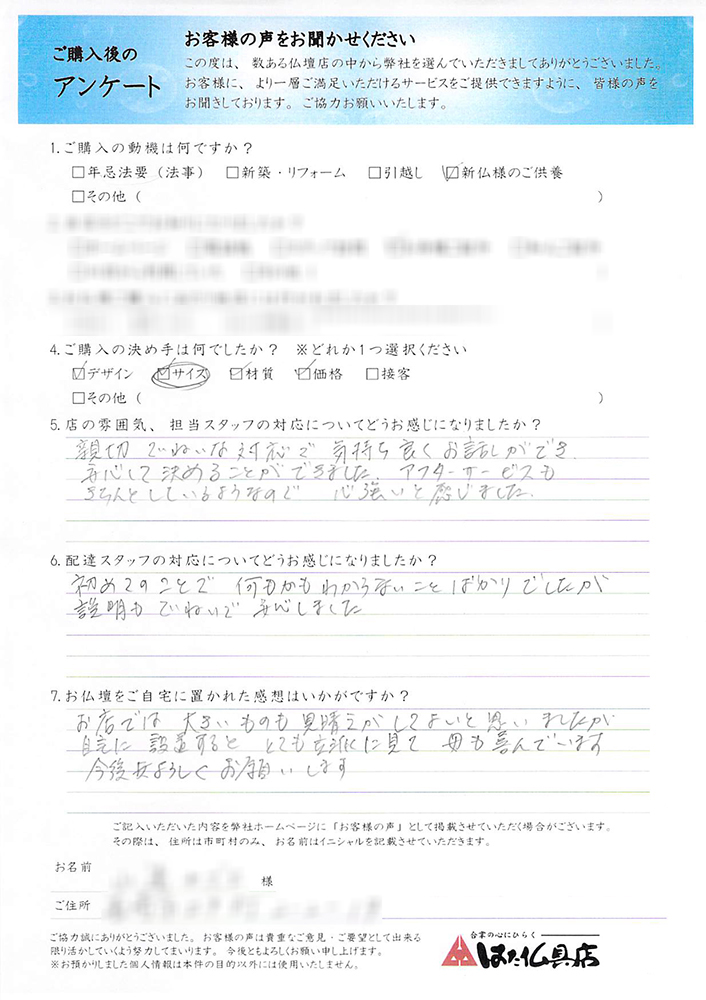 ご購入後の
アンケート
お客様の声をお聞かせください
この度は、数ある仏壇店の中から弊社を選んでいただきましてありがとうございました。
お客様に、より一層ご満足いただけるサービスをご提供できますように、皆様の声を
お聞きしております。ご協力お願いいたします。
1.ご購入の動機は何ですか?
□年忌法要(法事) □新築・リフォーム □引越し ☑新仏様のご供養
□その他( )
4.ご購入の決め手は何でしたか? ※どれか1つ選択ください
☑デザイン ☑サイズ ☑材質 ☑価格 □接客
□その他( )
5.店の雰囲気、担当スタッフの対応についてどうお感じになりましたか?
親切 ていねいな対応で 気持ち良くお話しができ、
安心して決めることができました。アフターサービスも
きちんとしているようなので 心強いと感じました。
6.配達スタッフの対応についてどうお感じになりましたか?
初めてのことで 何もかもわからないことばかりでしたが
説明もていねいで安心しました
7.お仏壇をご自宅に置かれた感想はいかがですか?
お店では 大きいものも見晴えがしてよいと思いましたが
自宅に設置すると とても立派に見えて 母も喜んでいます
今後共よろしくお願いします
ご記入いただいた内容を弊社ホームページに「お客様の声」として掲載させていただく場合がございます。
その際は、住所は市町村のみ、お名前はイニシャルを記載させていただきます。
お名前
様
ご住所
ご協力誠にありがとうございました。お客様の声は貴重なご意見・ご要望として出来る
限り活かしていくよう努力してまいります。今後ともよろしくお願い申し上げます。
※お預かりしました個人情報は本件の目的以外には使用いたしません。
合掌の心にひらく
はた仏具店